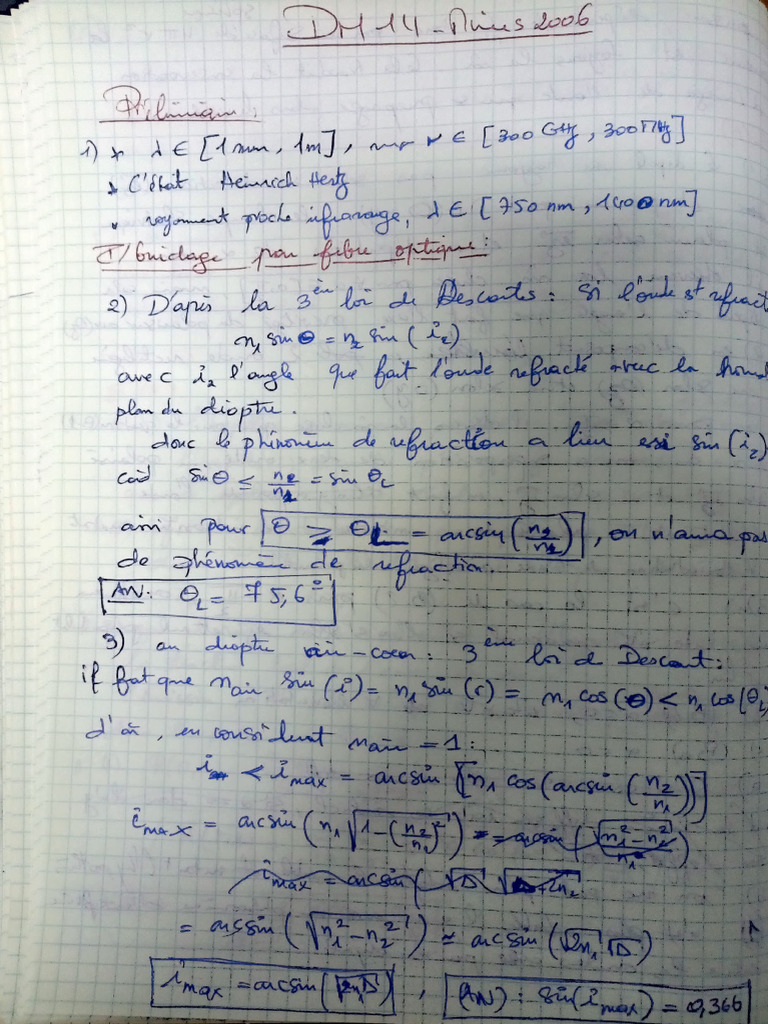 DM 14 - Mines 2006
Préliminaire.
1) * λ ∈ [1 mm, 1m], ν ∈ [300 GHz, 300 MHz]
* C'était Heinrich Hertz
* rayonnement proche infrarouge, λ ∈ [750 nm, 1400 nm]
I/ Guidage par fibre optique:
2) D'après la 3ème loi de Descartes: Si l'onde st refract
n₁ sin θ = n₂ sin(i₂)
avec i₂ l'angle que fait l'onde refracté avec la
plan du dioptre.
donc le phénomène de refraction a lieu ssi sin(i₂)
cad sinθ ≤ n₂/n₁ = sin θL
ainsi pour θ ≥ θL = arcsin(n₂/n₁), on n'aura pas
de phénomène de refraction.
AN: θL = 75,6°
3) au dioptre air-coeur: 3ème loi de Descart:
il fat que nair sin(i) = n₁ sin(r) = n₁ cos(θ) < n₁ cos(θL)
d'où, en considerant nair = 1:
i < imax = arcsin[n₁ cos(arcsin(n₂/n₁))]
imax = arcsin(n₁ √(1-(n₂/n₁)²))
= arcsin(√(n₁²-n₂²)) ≃ arcsin(√2n₁ √Δ)
imax = arcsin(√2n₁Δ), (AN): sin(imax) = 0,366